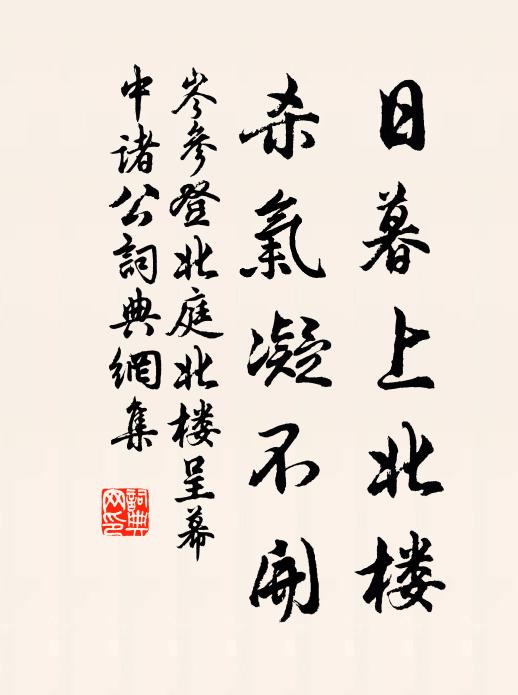 日暮上北楼
杀氣凝不開
岑參登北庭北楼呈幕
中诸公詞典網集
詞典网印